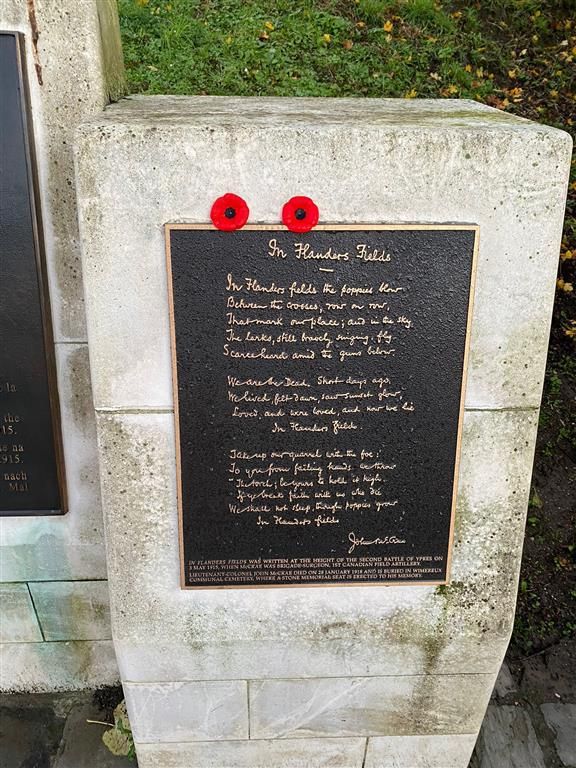 la
the
15.
e na
1915.
nach
Mai
In Flanders Fields
In Flanders fields the poppies blow
Between the crosses, row on row,
That mark our place; and in the sky
The larks, still bravely singing, fly
Scarce heard amid the guns below.
We are the Dead. Short days ago,
We lived, felt dawn, saw sunset glow,
Loved, and were loved, and now we lie
In Flanders fields.
Take up our quarrel with the foe:
To you from failing hands we throw
The torch; be yours to hold it high.
If ye break faith with us who die
We shall not sleep, though poppies grow
In Flanders fields
John McCrae
IN FLANDERS FIELDS WAS WRITTEN AT THE HEIGHT OF THE SECOND BATTLE OF YPRES ON
3 MAY 1915, WHEN McCRAE WAS BRIGADE-SURGEON, 1ST CANADIAN FIELD ARTILLERY.
LIEUTENANT-COLONEL JOHN McCRAE DIED ON 28 JANUARY 1918 AND IS BURIED IN WIMEREUX
COMMUNAL CEMETERY, WHERE A STONE MEMORIAL SEAT IS ERECTED TO HIS MEMORY.